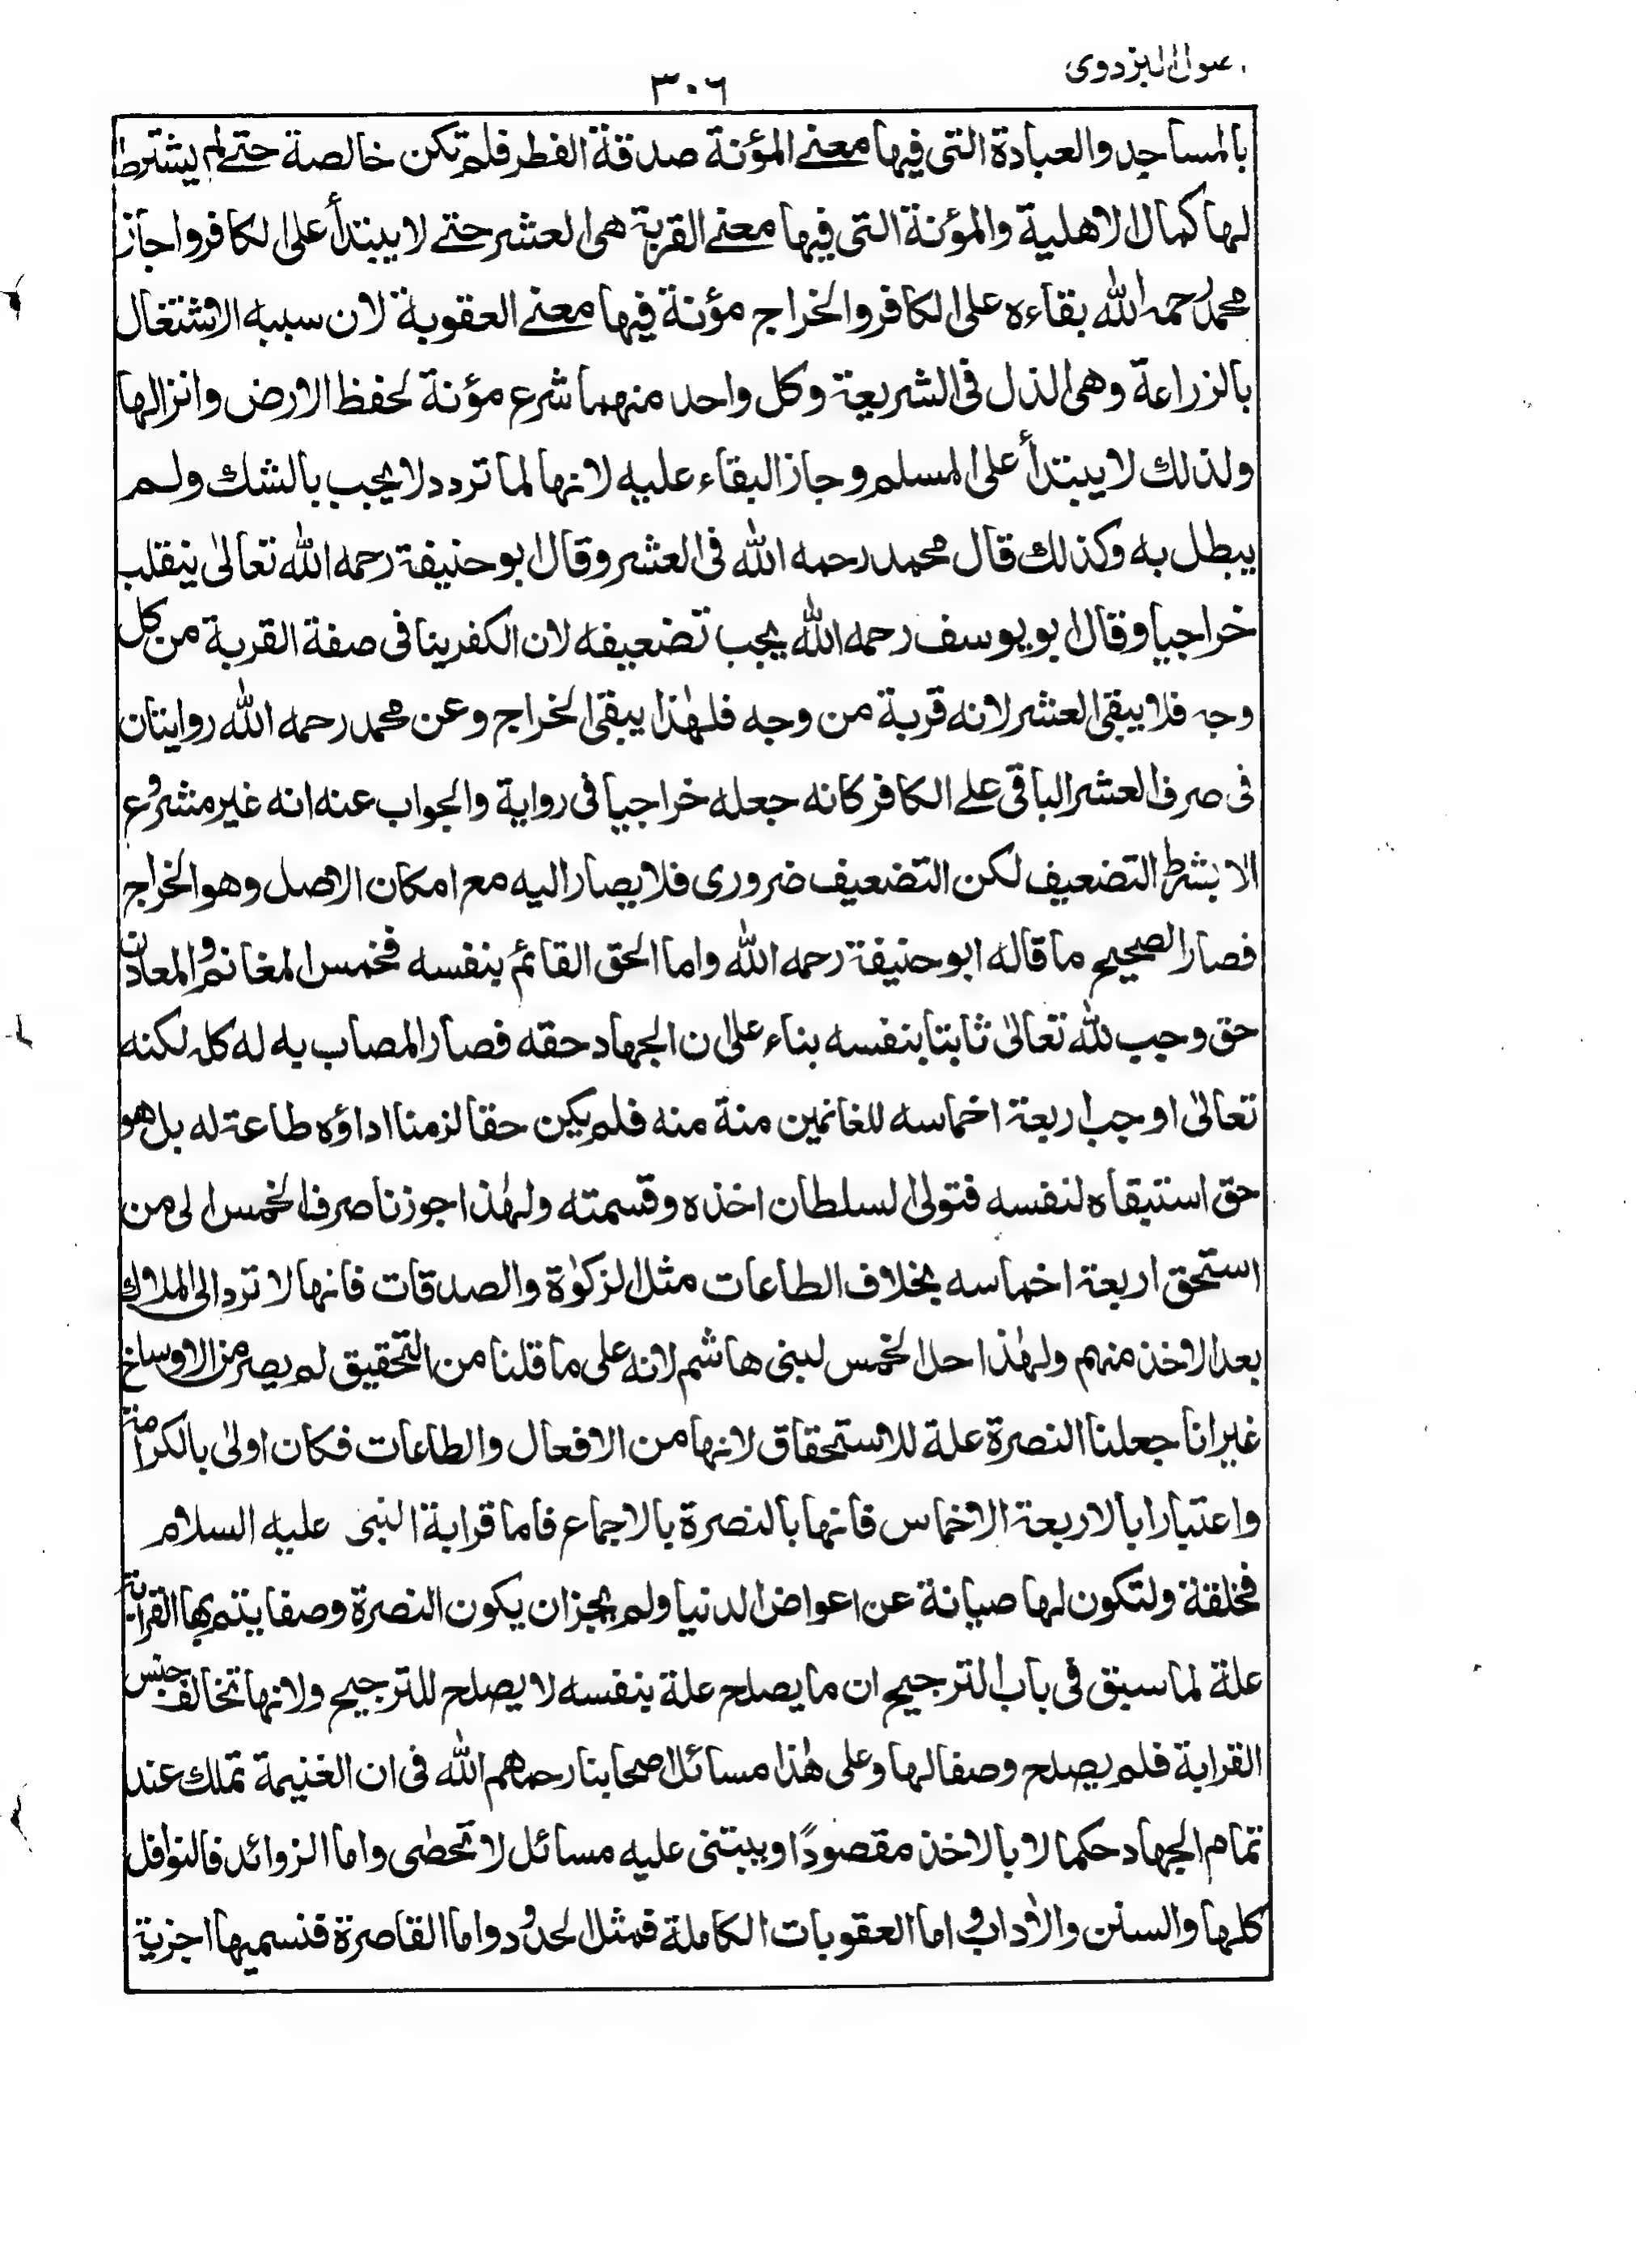 البزدوى
٣٠٦
بالمساجد والعبادة التى فيها معنے المؤنة صدقة الفطر فلم تكن خالصة حتے لم يشترط
لها كمال الاهلية والمؤنة التى فيها معنے القربة هى العشر حتے لا يبتدأ على الكافر واجاز
محمد رحمه الله بقاءه على الكافر والخراج مؤنة فيها معنے العقوبة لان سببه الاشتغال
بالزراعة وهى الذل فى الشريعة وكل واحد منهما شرع مؤنة لحفظ الارض وانزالها
ولذلك لا يبتدأ على المسلم وجاز البقاء عليه لانها لما تردد لا يجب بالشك ولم
يبطل به وكذلك قال محمد رحمه الله فى العشر وقال ابو حنيفة رحمه الله تعالى ينقلب
خراجيا وقال ابو يوسف رحمه الله يجب تضعيفه لان الكفر ينافى صفة القربة من كل
وجه فلا يبقى العشر لانه قربة من وجه فلهٰذا يبقى الخراج وعن محمد رحمه الله روايتان
فى صرف العشر الباقى علے الكافر كانه جعله خراجيا فى رواية والجواب عنه انه غير مشروع
الا بشرط التضعيف لكن التضعيف ضرورى فلا يصار اليه مع امكان الاصل وهو الخراج
فصار الصحيح ما قاله ابو حنيفة رحمه الله واما الحق القائم بنفسه فخمس المغانم والمعادن
حق وجب لله تعالىٰ ثابتا بنفسه بناء على ان الجهاد حقه فصار المصاب به له كله لكنه
تعالىٰ اوجب اربعة اخماسه للغانمين منة منه فلم يكن حقا لزمنا اداؤه طاعة له بل هو
حق استبقاه لنفسه فتولى السلطان اخذه وقسمته ولهٰذا جوزنا صرف الخمس الى من
استحق اربعة اخماسه بخلاف الطاعات مثل الزكوٰة والصدقات فانها لا ترد الى الملاك
بعد الاخذ منهم ولهٰذا حل الخمس لبنى هاشم لانه على ما قلنا من التحقيق لم يصر من الاوساخ
غير انا جعلنا النصرة علة للاستحقاق لانها من الافعال والطاعات فكان اولىٰ بالكرامة
واعتبارا بالاربعة الاخماس فانها بالنصرة بالاجماع فاما قرابة النبى عليه السلام
فخلقة ولتكون لها صيانة عن اعواض الدنيا ولم يجز ان يكون النصرة وصفا يتم بها القرابة
علة لما سبق فى باب الترجيح ان ما يصلح علة بنفسه لا يصلح للترجيح ولانها تخالف جنس
القرابة فلم يصلح وصفا لها وعلى هٰذا مسائل اصحابنا رحمهم الله فى ان الغنيمة تملك عند
تمام الجهاد حكما لا بالاخذ مقصودًا ويبتنى عليه مسائل لا تحصٰى واما الزوائد فالنوافل
كلها والسنن والاٰداب واما العقوبات الكاملة فمثل الحدود واما القاصرة فنسميها اجزية